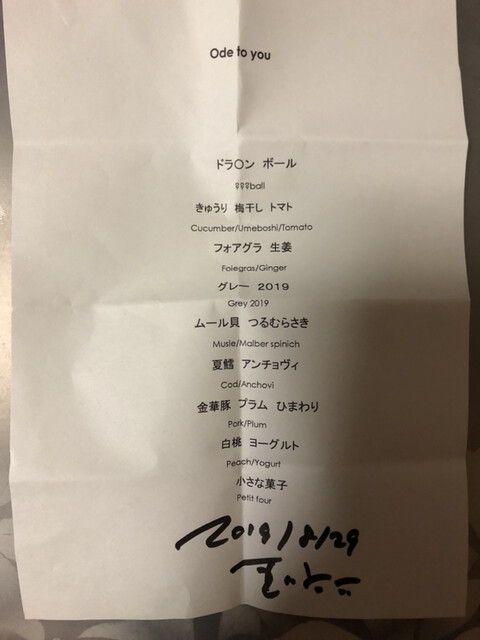 Ode to you
ドラ〇ン ボール
???ball
きゅうり 梅干し トマト
Cucumber/Umeboshi/Tomato
フォアグラ 生姜
Foiegras/Ginger
グレー 2019
Grey 2019
ムール貝 つるむらさき
Musle/Malber spinich
夏鱈 アンチョヴィ
Cod/Anchovi
金華豚 プラム ひまわり
Pork/Plum
白桃 ヨーグルト
Peach/Yogurt
小さな菓子
Petit four
2019/8/29